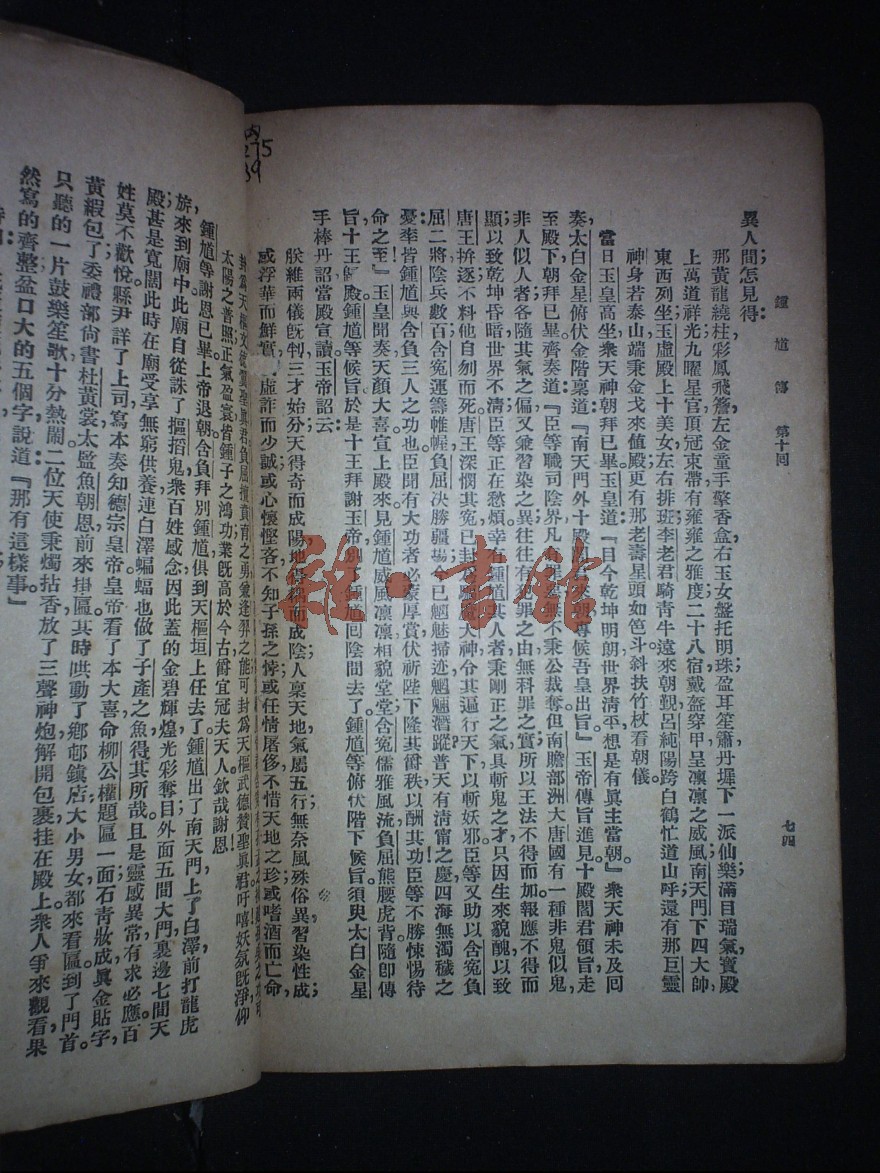 鍾馗傳 第十回
七四
異人間怎見得:
那黃龍繞柱彩鳳飛簷左金童手擎香盒右玉女盤托明珠盈耳笙簫丹墀下一派仙樂滿目瑞氣寶殿
上萬道祥光九曜星官頂冠束帶有雍雍之雅度二十八宿戴盔穿甲呈凜凜之威風南天門下四大帥
東西列坐玉虛殿上十美女左右排班李老君騎青牛遠來朝覲呂純陽跨白鶴忙道山呼還有那巨靈
神身若泰山端秉金戈來值殿更有那老壽星頭如笆斗斜扶竹杖看朝儀。
當日玉皇高坐衆天神朝拜已畢玉皇道:『日今乾坤明朗世界清平想是有眞主當朝』衆天神未及回
奏太白金星俯伏金階稟道:『南天門外十殿君來朝尋候吾皇出旨』玉帝傳旨進見。十殿閻君領旨走
至殿下朝拜已畢齊奏道:『臣等職司陰界凡有無不秉公裁奪但南贍部洲大唐國有一種非鬼似鬼,
非人似人者各隨其氣之偏又兼習染之異往往有罪之由無科罪之實所以王法不得而加報應不得而
顯以致乾坤昏暗世界不清臣等正在愁煩幸有鍾馗其人者秉剛正之氣具斬鬼之才只因生來貌醜以致
唐王拚逐不料他自刎而死唐王深憫其冤已封大神令其遍行天下以斬妖邪臣等又助以含冤負
屈二將陰兵數百含冤運籌帷幄負屈決勝疆場今已魍魅掃迹魍魎潛蹤普天有清甯之慶四海無濁穢之
憂率皆鍾馗與含負三人之功也臣聞有大功者必蒙厚賞伏祈陛下隆其爵秩以酬其功臣等不勝悚惕待
命之至』玉皇聞奏天顏大喜宣上殿來見鍾馗威風凛凛相貌堂堂含冤儒雅風流負屈熊腰虎背隨卽傳
旨十王殿鍾馗等候旨於是十王拜謝玉帝別了鍾馗回陰間去了鍾馗等俯伏階下候旨須臾太白金星
手棒丹詔當殿宣讀玉帝詔云:
朕維兩儀旣判三才始分天得奇而成陽地得耦而成陰人稟天地氣屬五行無奈風殊俗異習染性成;
或浮華而鮮實虛詐而少誠或心懷慳吝不知子孫之悖或任情屠侈不惜天地之珍或嗜酒而亡命
太陽之普照;正氣盈寰皆鍾子之鴻功業旣高於今古爵宜冠夫天人欽哉謝恩
鍾馗等謝恩已畢上帝退朝含負拜別鍾馗俱到天樞垣上任去了鍾馗出了南天門上了白澤前打龍虎
旂來到廟中此廟自從誅了摳搯鬼衆百姓感念因此蓋的金碧輝煌光彩奪目外面五間大門裏邊七間天
殿甚是寬闊此時在廟受享無窮供養連白澤蝙蝠也做了子產之魚得其所哉且是靈感異常有求必應百
姓莫不歡悅縣尹詳了上司寫本奏知德宗皇帝皇帝看了本大喜命柳公權題匾一面石青妝成眞金貼字,
黃緞包了委禮部尙書杜黃裳太監魚朝恩前來掛匾其時哄動了鄉邨鎮店大小男女都來看匾到了門首
只聽的一片鼓樂笙歌十分熱鬧二位天使秉燭拈香放了三聲神炮解開包裹挂在殿上衆人爭來觀看果
然寫的齊整盆口大的五個字說道『那有這樣事』
雅·書館